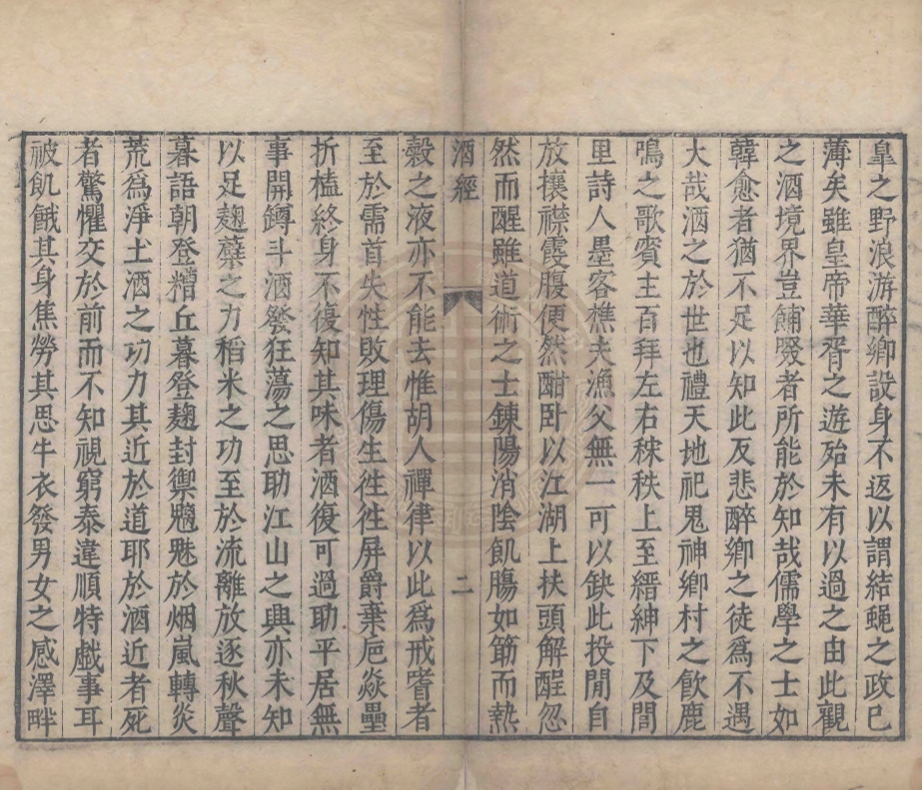 皇之野浪游醉鄉設身不返以謂結蠅之政已
薄矣雖皇帝華胥之遊殆未有以過之由此觀
之酒境界豈餔歠者所能於知哉儒學之士如
韓愈者猶不足以知此反悲醉鄉之徒爲不遇
大哉酒之於世也禮天地祀鬼神鄉村之飲鹿
鳴之歌賓主百拜左右秩秩上至縉紳下及閭
里詩人墨客樵夫漁父無一可以缺此投閒自
放攘襟霞腹便然酣卧以江湖上扶頭解酲忽
然而醒雖道術之士鍊陽消陰飢膓如筋而熱
酒經
二
穀之液亦不能去惟胡人禪律以此爲戒嗜者
至於濡首失性敗理傷生徃徃屏爵棄巵焱罍
折榼終身不復知其味者酒復可過助平居無
事開罇斗酒發狂蕩之思助江山之興亦未知
以足麹蘖之力稻米之功至於流離放逐秋聲
暮語朝登糟丘暮登麹封禦魑魅於烟嵐轉炎
荒爲淨土酒之功力其近於道耶於酒近者死
者驚懼交於前而不知視窮泰違順特戲事耳
被飢餓其身焦勞其思牛衣發男女之感澤畔